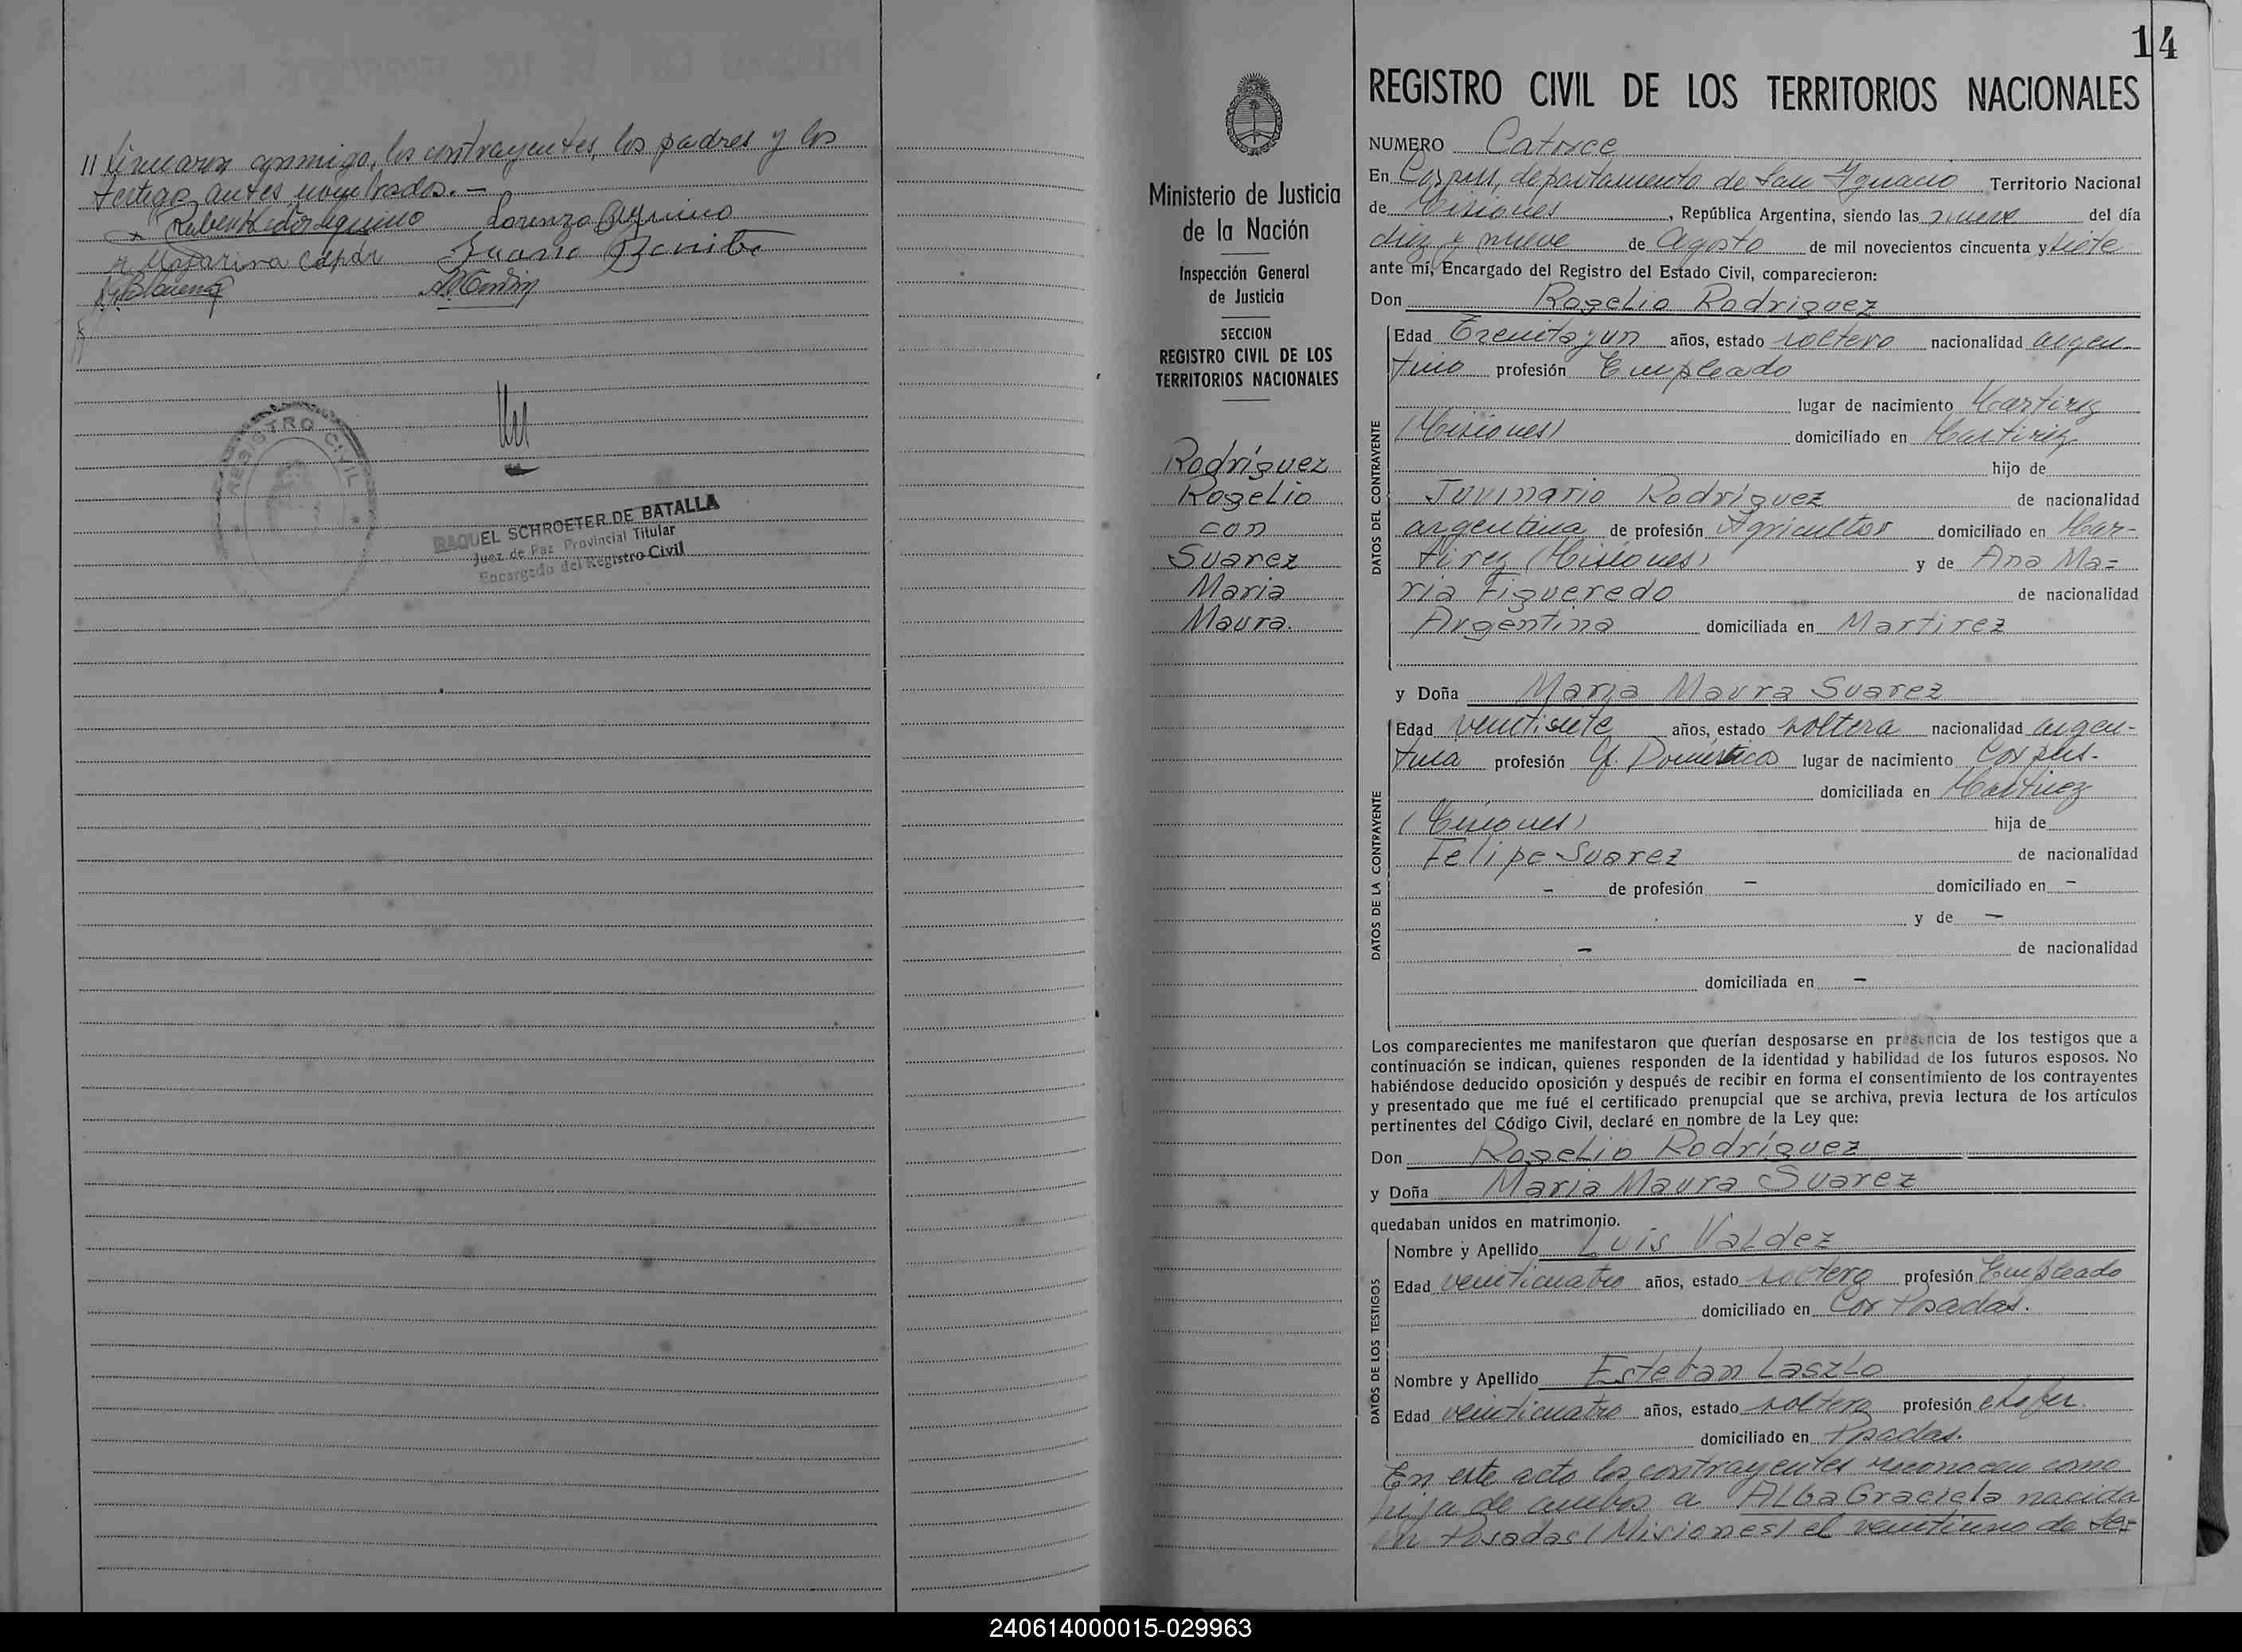 // firmaron conmigo, los contrayentes, los padres y los
testigos antes nombrados.-
Lorenzo Aquino
Juana Benitez
REGISTRO CIVIL
RAQUEL SCHROETER DE BATALLA
Juez de Paz Provincial Titular
Encargada del Registro Civil
14
Ministerio de Justicia
de la Nación
Inspección General
de Justicia
SECCION
REGISTRO CIVIL DE LOS
TERRITORIOS NACIONALES
Rodríguez
Rogelio
con
Suarez
Maria
Maura.
REGISTRO CIVIL DE LOS TERRITORIOS NACIONALES
NUMERO Catorce
En Corpus, departamento de San Ignacio Territorio Nacional
de Misiones, República Argentina, siendo las nueve del día
diez y nueve de Agosto de mil novecientos cincuenta y siete
ante mí, Encargado del Registro del Estado Civil, comparecieron:
Don Rogelio Rodriguez
DATOS DEL CONTRAYENTE
Edad Treinta y un años, estado soltero nacionalidad argen-
tino profesión Empleado
lugar de nacimiento Martirez
(Misiones) domiciliado en Martirez
hijo de
Juvinario Rodríguez de nacionalidad
argentina de profesión Agricultor domiciliado en Mar-
tirez (Misiones) y de Ana Ma=
ria Figueredo de nacionalidad
Argentina domiciliada en Martirez
y Doña Maria Maura Suarez
DATOS DE LA CONTRAYENTE
Edad veintisiete años, estado soltera nacionalidad argen-
tina profesión Q. Domésticos lugar de nacimiento Corpus-
domiciliada en Martirez
(Misiones) hija de
Felipe Suarez de nacionalidad
- de profesión - domiciliado en -
y de -
- de nacionalidad
domiciliada en -
Los comparecientes me manifestaron que querían desposarse en presencia de los testigos que a
continuación se indican, quienes responden de la identidad y habilidad de los futuros esposos. No
habiéndose deducido oposición y después de recibir en forma el consentimiento de los contrayentes
y presentado que me fué el certificado prenupcial que se archiva, previa lectura de los artículos
pertinentes del Código Civil, declaré en nombre de la Ley que:
Don Rogelio Rodríguez
y Doña Maria Maura Suarez
quedaban unidos en matrimonio.
DATOS DE LOS TESTIGOS
Nombre y Apellido Luis Valdez
Edad veinticuatro años, estado soltero profesión Empleado
domiciliado en Posadas.
Nombre y Apellido Esteban Laszlo
Edad veinticuatro años, estado soltero profesión chofer.
domiciliado en Posadas.
En este acto los contrayentes reconocen como
hija de ambos a Alba Graciela nacida
en Posadas (Misiones) el veintiuno de Se=
240614000015-029963